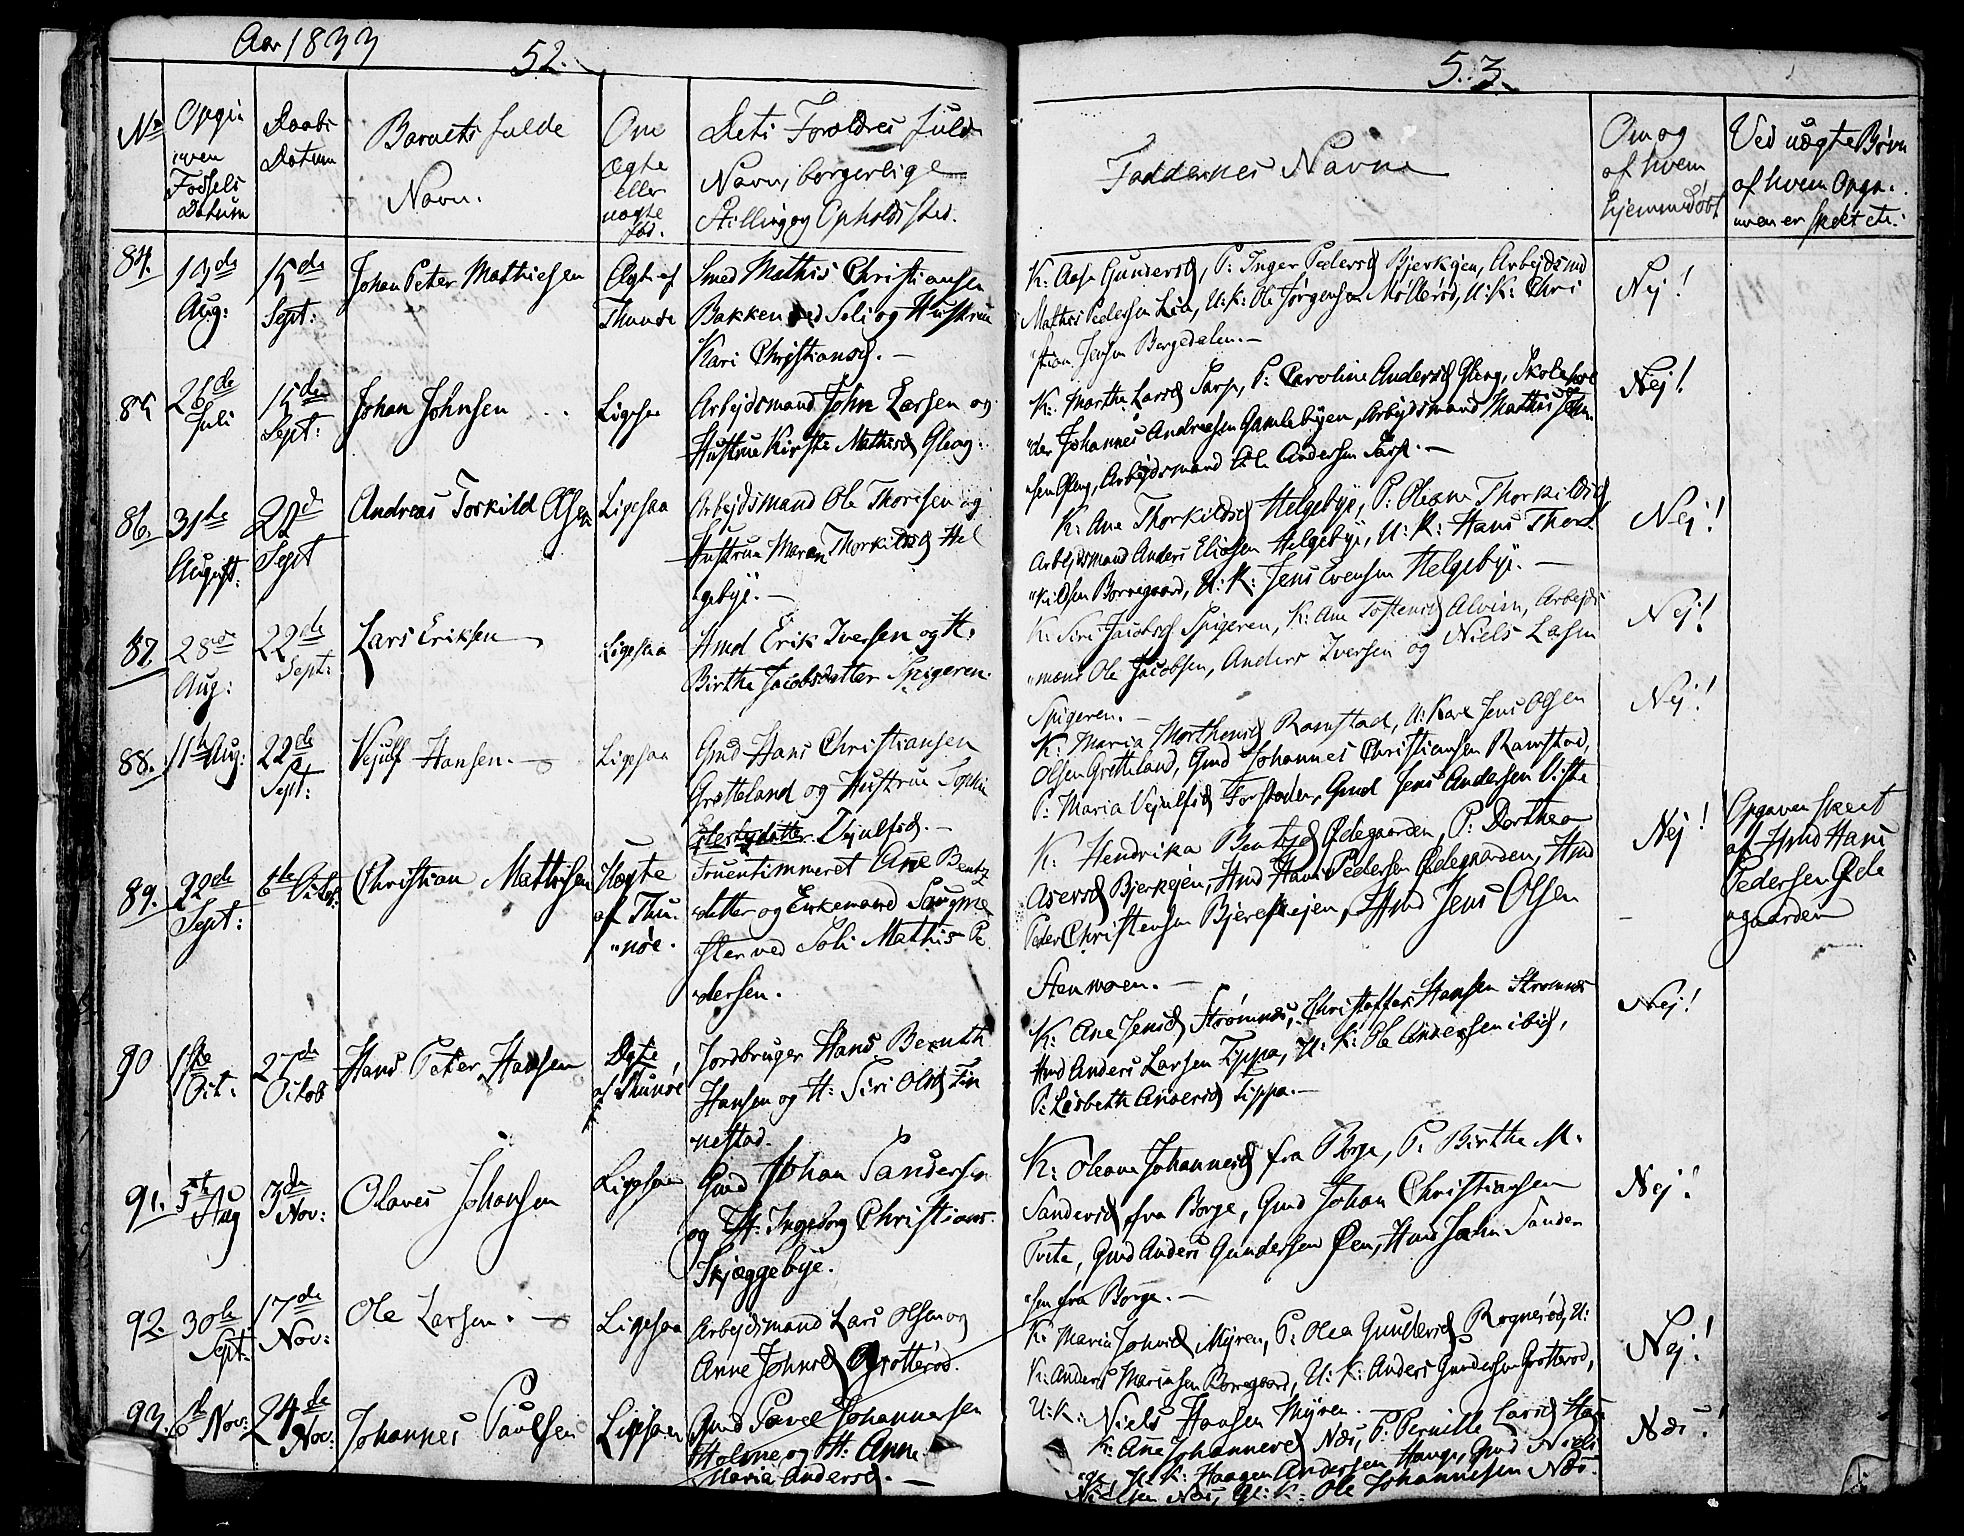 Aar 1833
52.
No
Opgi
ven
Fødsels
Datum
Daabs
Datum
Barnets fulde
Navn.
Om
Ægte
eller
uægte
fød.
Dets Foreldres fulde
Navn, borgerlige
Stilling og Opholdssted.
84.
19de
Aug:
15de
Sept:
Johan Peter Mathiesen
Ægte af
Thunøe
Smed Mathis Christiansen
Bakken ved Soli og Hustrue
Kari Christiansd. —
85
26de
Juli
15de
Sept:
Johan Johnsen
Ligesaa
Arbejdsmand John Larsen og
Hustrue Kirste Mathisd Gleng:
86.
31te
August:
22d
Sept
Andreas Torkild Olsen
Ligesaa
Arbejdsmand Ole Thoresen og
Hustrue Maren Thorkildsd Hel
gebÿe. —
87.
28de
Aug:
22de
Sept:
Lars Eriksen
Ligesaa
Hmd Erik Iversen og H:
Birthe Jacobsdatter Spigeren.
88.
11te Aug:
22de
Sept:
Vejulf Hansen. —
Ligesaa
Gmd Hans Christiansen
Grøtteland og Hustrue Sophie
Vejulfsd. —
89.
22de
Sept:
6te Octob:
Christian Mathisen
Uægte
af Thu-
"nøe.
Fruentimmeret Ane Bentz
"datter og Enkemand Saugme
ster ved Soli Mathis Pe
"dersen.
90
1ste
Oct:
27de
Octob
Hans Peter Hansen
Ægte
af Thunøe
Jordbruger Hans Bernth
Hansen og H: Siri Olsd Fin
"nestad.
91.
5te
Aug
3de
Nov:
Olaves Johansen
Ligesaa
Gmd Johan Sandersen
og H: Ingeborg Christians.
Skjæggebÿe.
92.
30te
Sept:
17de
Nov:
Ole Larsen. —
Ligesaa
Arbejdsmand Lars Olsen og
Anne Johnsd Grøtterød.
93.
Nov:
24de
Nov:
Johannes Paulsen
Ligesaa
Gmd Povel Johannesen
Holme og H: Anne
Maria Andersd. —
5.3.
Faddernes Navne
Om og
af hvem
hjemmedøbt
Ved uægte Børn
af hvem Opgi-
"ven er skeet etc:
K: Aase Gundersd, P: Inger Pedersd Bjerkejen, Arbejdsmd
Mathis Pedersen Lia, U:K: Ole Jørgensen Møllerød, U:K: Chri
"stian Jensen Borgedalen. —
Nej!
K: Marthe Larsd Sarp, P: Caroline Andersd Gleng, Skolehol
"der Johannes Andreasen Gamlebÿen, Arbejdsmand Mathis John
"sen Gleng, Arbejdsmand Ole Andersen Sarp. —
Nej!
K: Ane Thorkildsd Helgebÿe, P: Oleane Thorkildsd
Arbejdsmand Anders Eliasen Helgebÿe, U:K: Hans Thor
"kildsen Borregaard, U:K: Jens Evensen Helgebÿe. —
Nej!
K: Siri Jacobsd Spigeren, K: Ane Tostensd Alvim, Arbejds
"mænd Ole Jacobsen, Anders Iversen og Niels Lasen
Spigeren. —
Nej!
K: Maria Morthensd Ramstad, U: Karl Jens Olsen
Olsen Grøtteland, Gmd Johannes Christiansen Ramstad,
P: Maria Vejulfsd Torstøden, Gmd Jens Andersen Viste
Nej!
K: Hendrika Bentzd Ødegaarden, P: Dorthea
Asersd Bjerkejen, Hmd Hans Pedersen Ødegaarden, Hmd
Peder Christensen Bjerkejen, Hmd Jens Olsen
Stenmoen. —
Nej!
Opgaven skeet
af Hmd Hans
Pedersen Øde
"gaarden
K: Ane Jensd Strømnes, Christoffer Hansen Strømnes
Hmd Anders Larsen Tippa, U:K: Ole Andersen ibid,
P: Lisbeth Andersd Tippa. —
Nej!
K: Oleane Johannesd fra Borge, P: Birthe M:
Sandersd fra Borge, Gmd Johan Christiansen
Tvete, Gmd Anders Gundersen Øen, Hans John Sander
"sen fra Borge. —
Nej!
K: Maria Johnsd Myren, P: Olea Gundersd Rognerød, U:
K: Anders Mariusen Borregaard, U:K: Anders Gundersen Grøtterød,
U:K: Niels Hansen Myren.
Nej!
K: Anne Johannesd Næs, P: Pernille Larsd Hau
"ge, U:K: Haagen Andersen Hauge, Gmd Niels
Nielsen Næs, U:K: Ole Johannesen Næs.
Nei!